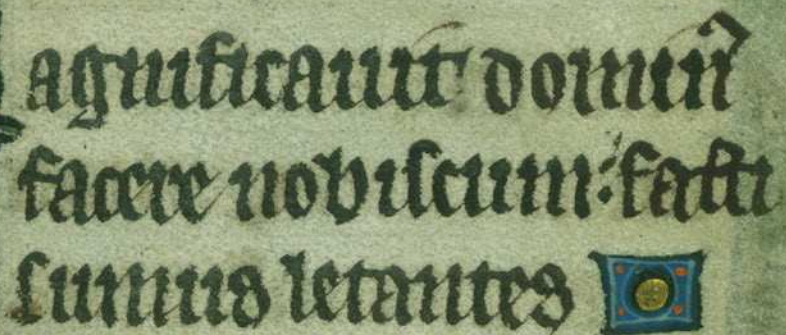 agnificauit domin̄
facere nobiscum: facti
sumus letantes